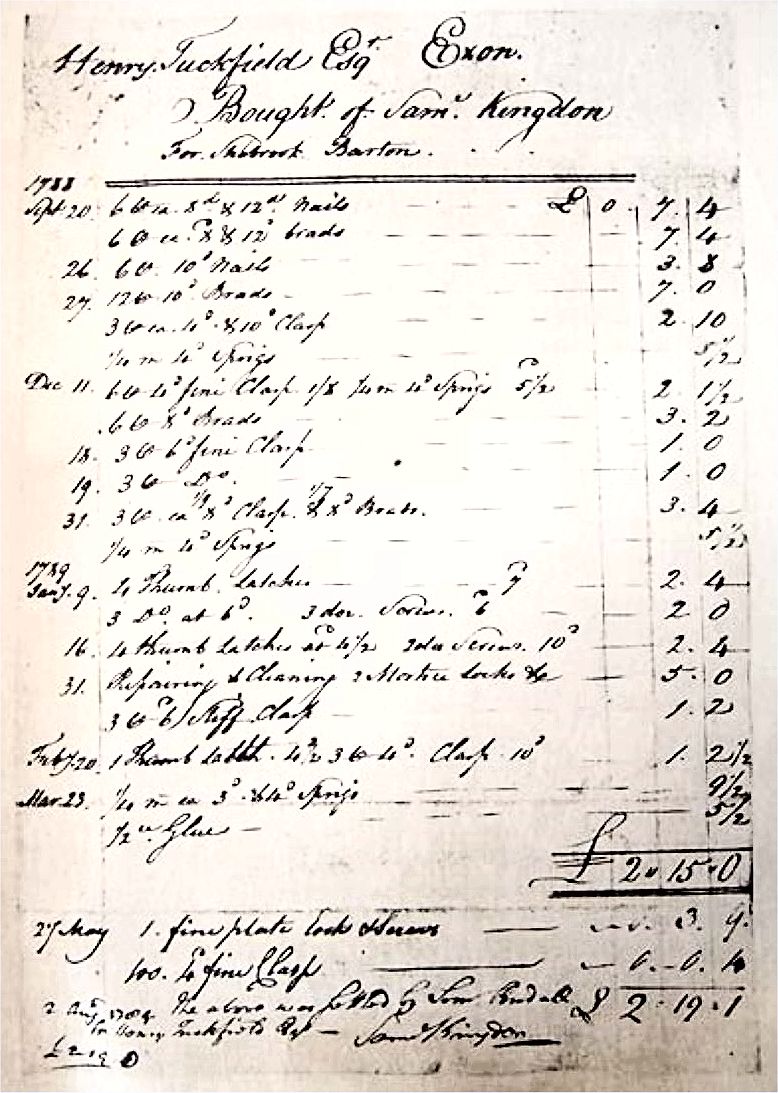 Henry Tuckfield Esqr Exon.
Bought of Saml. Kingdon
For Barton.
1788
Sept 20. 6 ℔ ea. 8d & 12d Nails £ 0. 7. 4
6 ℔ ea. 8 & 12d brads 7. 4
26. 6 ℔. 10d Nails 3. 8
27. 12 ℔ 10d Brads 7. 0
3 ℔ ea. 4d. & 10d Clasp 2. 10
1/4 m 4d Sprigs 5 1/2
Dec 11. 6 ℔ 4d fine Clasp 1/8 1/4 m 4d Sprigs 5 1/2 2. 1 1/2
6 ℔ 8d Brads 3. 2
18. 3 ℔ 6d fine Clasp 1. 0
19. 3 ℔ Do. 1. 0
31. 3 ℔. ea 8d Clasp. & 8d Brads. 3. 4
1/4 m 4d Sprigs 5 1/2
1789
Jany. 9. 4 Thumb Latches 7 2. 4
3 Do. at 6d. 3 doz. Screws. 6 2 0
16. 4 thumb Latches at 4 1/2 Screws. 10d 2. 4
31. Repairing & Cleaning 2 Mortice Locks &c 5. 0
3 ℔ 6d Stiff Clasp 1. 2
Feby. 20. 1 Thumb Latch. 4 1/2 3 ℔ 4d. Clasp 10d 1. 2 1/2
Mar. 23. 1/4 m ea 3d & 4d Sprigs 9 1/2
1/2 Glue 5 1/2
£ 2 " 15 " 0
27 May 1. fine plate Lock & Screws 3. 9.
100. 4d fine Clasp 0. 0. 4
2 Augt 1789 The above was Settled by Saml £ 2 " 19 " 1
for Henry Tuckfield Esqr Saml Kingdon
£ 2 " 19